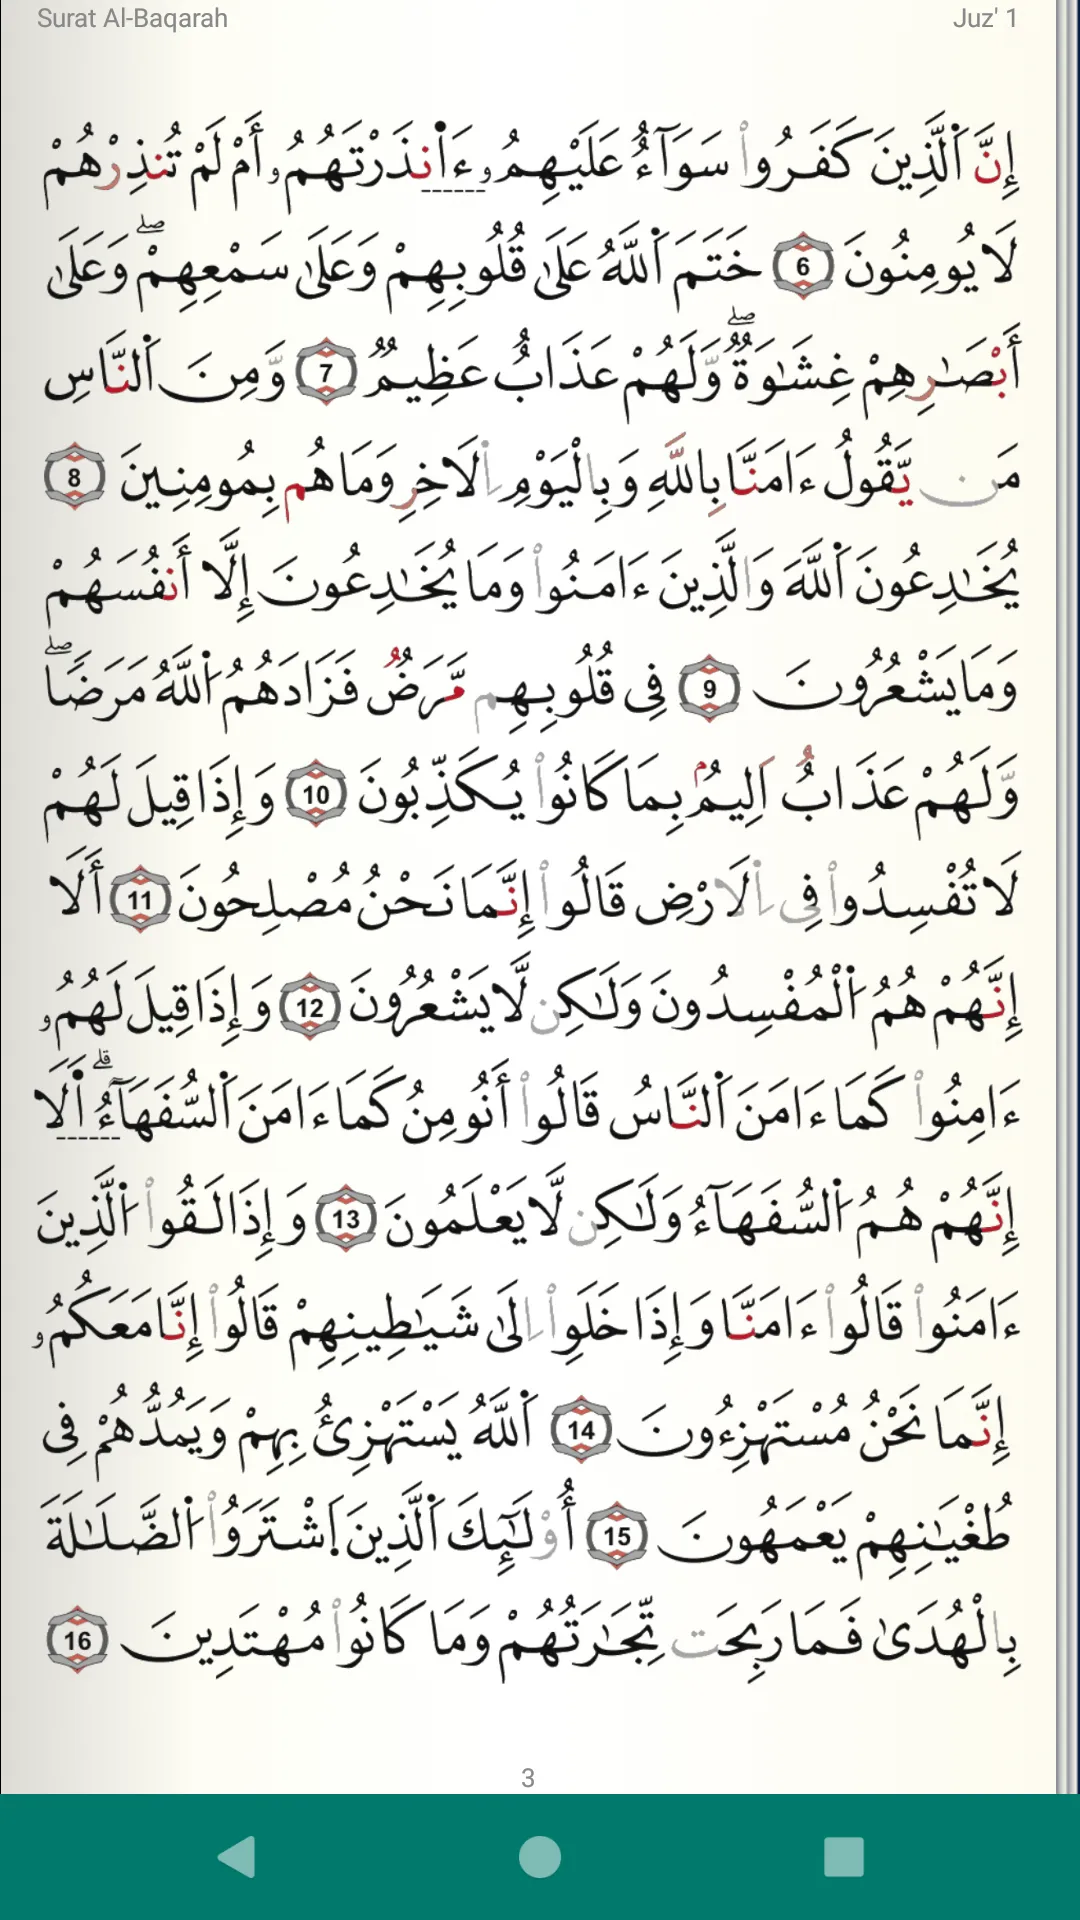 Surat Al-Baqarah Juz' 1
إِنَّ اَ۬لَّذِينَ كَفَرُواْ سَوَآءٌ عَلَيْهِمُۥٓ ءَا۬نذَرْتَهُمُۥٓ أَمْ لَمْ تُنذِرْهُمْ
لَا يُومِنُونَ 6 خَتَمَ اَ۬للَّهُ عَلَىٰ قُلُوبِهِمْ وَعَلَىٰ سَمْعِهِمْۖ وَعَلَىٰ
أَبْصَـٰرِهِمْ غِشَـٰوَةٌۖ وَلَهُمْ عَذَابٌ عَظِيمٌ 7 وَمِنَ اَ۬لنَّاسِ
مَن يَّقُولُ ءَامَنَّا بِاللَّهِ وَبِالْيَوْمِ اِ۬لَاخِرِ وَمَا هُم بِمُومِنِينَ 8
يُخَـٰدِعُونَ اَ۬للَّهَ وَالَّذِينَ ءَامَنُواْ وَمَا يُخَـٰدِعُونَ إِلَّا أَنفُسَهُمْ
وَمَا يَشْعُرُونَ 9 فِى قُلُوبِهِم مَّرَضٌ فَزَادَهُمُ اُ۬للَّهُ مَرَضًاۖ
وَلَهُمْ عَذَابٌ اَلِيمٌۢ بِمَا كَانُواْ يُكَذِّبُونَ 10 وَإِذَا قِيلَ لَهُمْ
لَا تُفْسِدُواْ فِى اِ۬لَارْضِ قَالُواْ إِنَّمَا نَحْنُ مُصْلِحُونَ 11 أَلَا
إِنَّهُمْ هُمُ اُ۬لْمُفْسِدُونَ وَلَـٰكِن لَّا يَشْعُرُونَ 12 وَإِذَا قِيلَ لَهُمُۥٓ
ءَامِنُواْ كَمَا ءَامَنَ اَ۬لنَّاسُ قَالُواْ أَنُومِنُ كَمَا ءَامَنَ اَ۬لسُّفَهَآءُۗ اَ۬لَا
إِنَّهُمْ هُمُ اُ۬لسُّفَهَآءُ وَلَـٰكِن لَّا يَعْلَمُونَ 13 وَإِذَا لَقُواْ اُ۬لَّذِينَ
ءَامَنُواْ قَالُواْ ءَامَنَّا وَإِذَا خَلَوِاْ اِلَىٰ شَيَـٰطِينِهِمْ قَالُواْ إِنَّا مَعَكُمُۥٓ
إِنَّمَا نَحْنُ مُسْتَهْزِءُونَ 14 اَ۬للَّهُ يَسْتَهْزِئُ بِهِمْ وَيَمُدُّهُمْ فِى
طُغْيَـٰنِهِمْ يَعْمَهُونَ 15 أُوْلَـٰٓئِكَ اَ۬لَّذِينَ اَ۪شْتَرَوُاْ اُ۬لضَّلَـٰلَةَ
بِالْهُدَىٰ فَمَا رَبِحَت تِّجَـٰرَتُهُمْ وَمَا كَانُواْ مُهْتَدِينَ 16
3